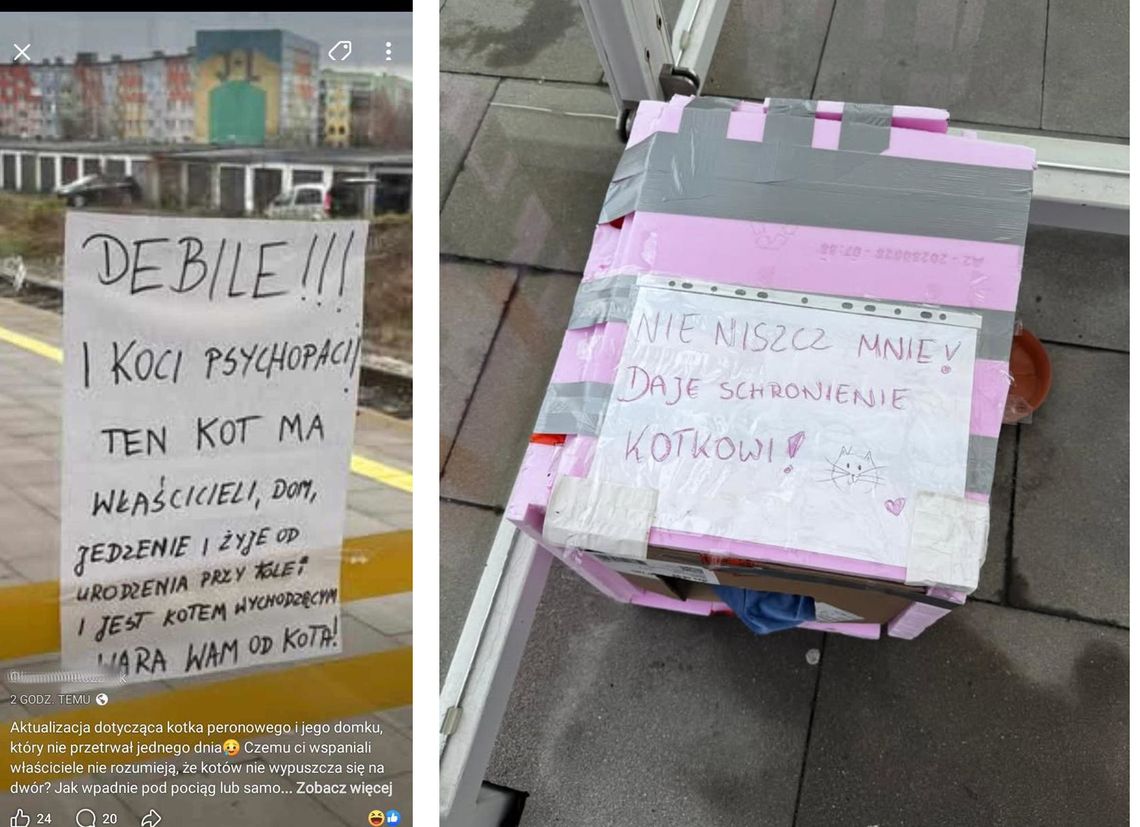 DEBILE!!!
I KOCI PSYCHOPACI!
TEN KOT MA
WŁAŚCICIELI, DOM,
JEDZENIE I ŻYJE OD
URODZENIA PRZY KOLEI
I JEST KOTEM WYCHODZĘCYM
WARA WAM OD KOTA!
2 GODZ. TEMU
Aktualizacja dotycząca kotka peronowego i jego domku,
który nie przetrwał jednego dnia😥 Czemu ci wspaniali
właściciele nie rozumieją, że kotów nie wypuszcza się na
dwór? Jak wpadnie pod pociąg lub samo... Zobacz więcej
24 20
NIE NISZCZ MNIE!
DAJE SCHRONIENIE
KOTKOWI!